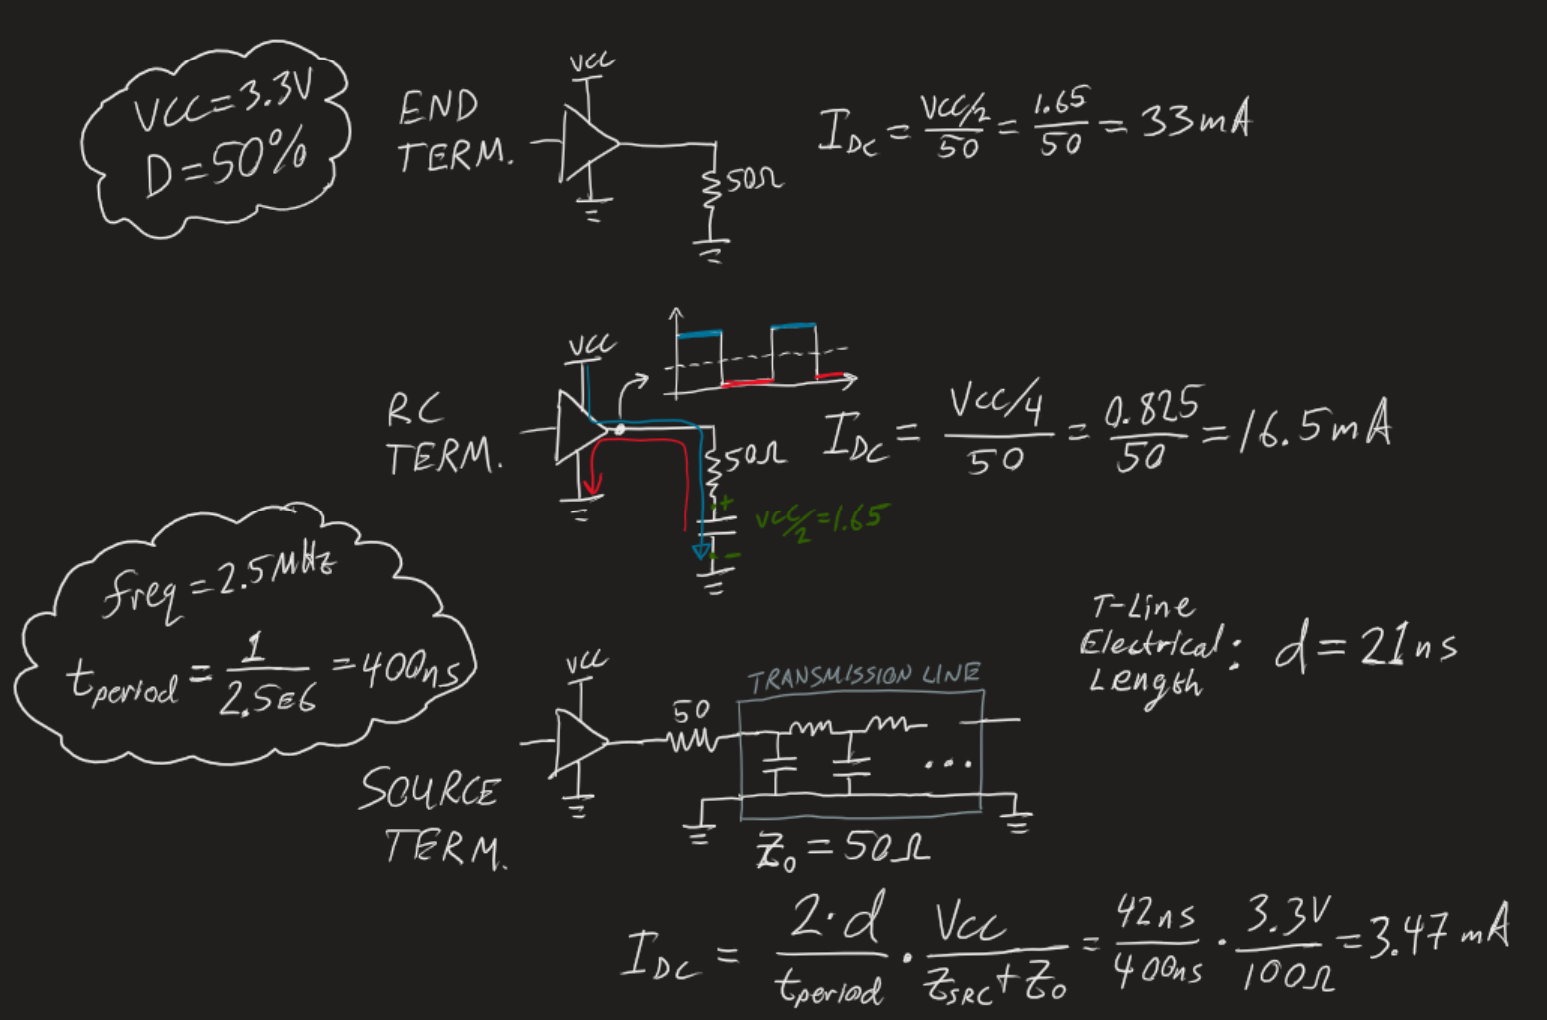 VCC=3.3V
D=50%
END
TERM.
VCC
50Ω
I_DC = (VCC/2)/50 = 1.65/50 = 33mA
RC
TERM.
VCC
50Ω
+
VCC/2=1.65
-
I_DC = (VCC/4)/50 = 0.825/50 = 16.5mA
freq=2.5MHz
t_period = 1/2.5E6 = 400ns
T-Line
Electrical:
Length
d=21ns
SOURCE
TERM.
VCC
50
TRANSMISSION LINE
...
Z_0 = 50Ω
I_DC = (2·d)/t_period · VCC/(Z_SRC+Z_0) = 42ns/400ns · 3.3V/100Ω = 3.47mA